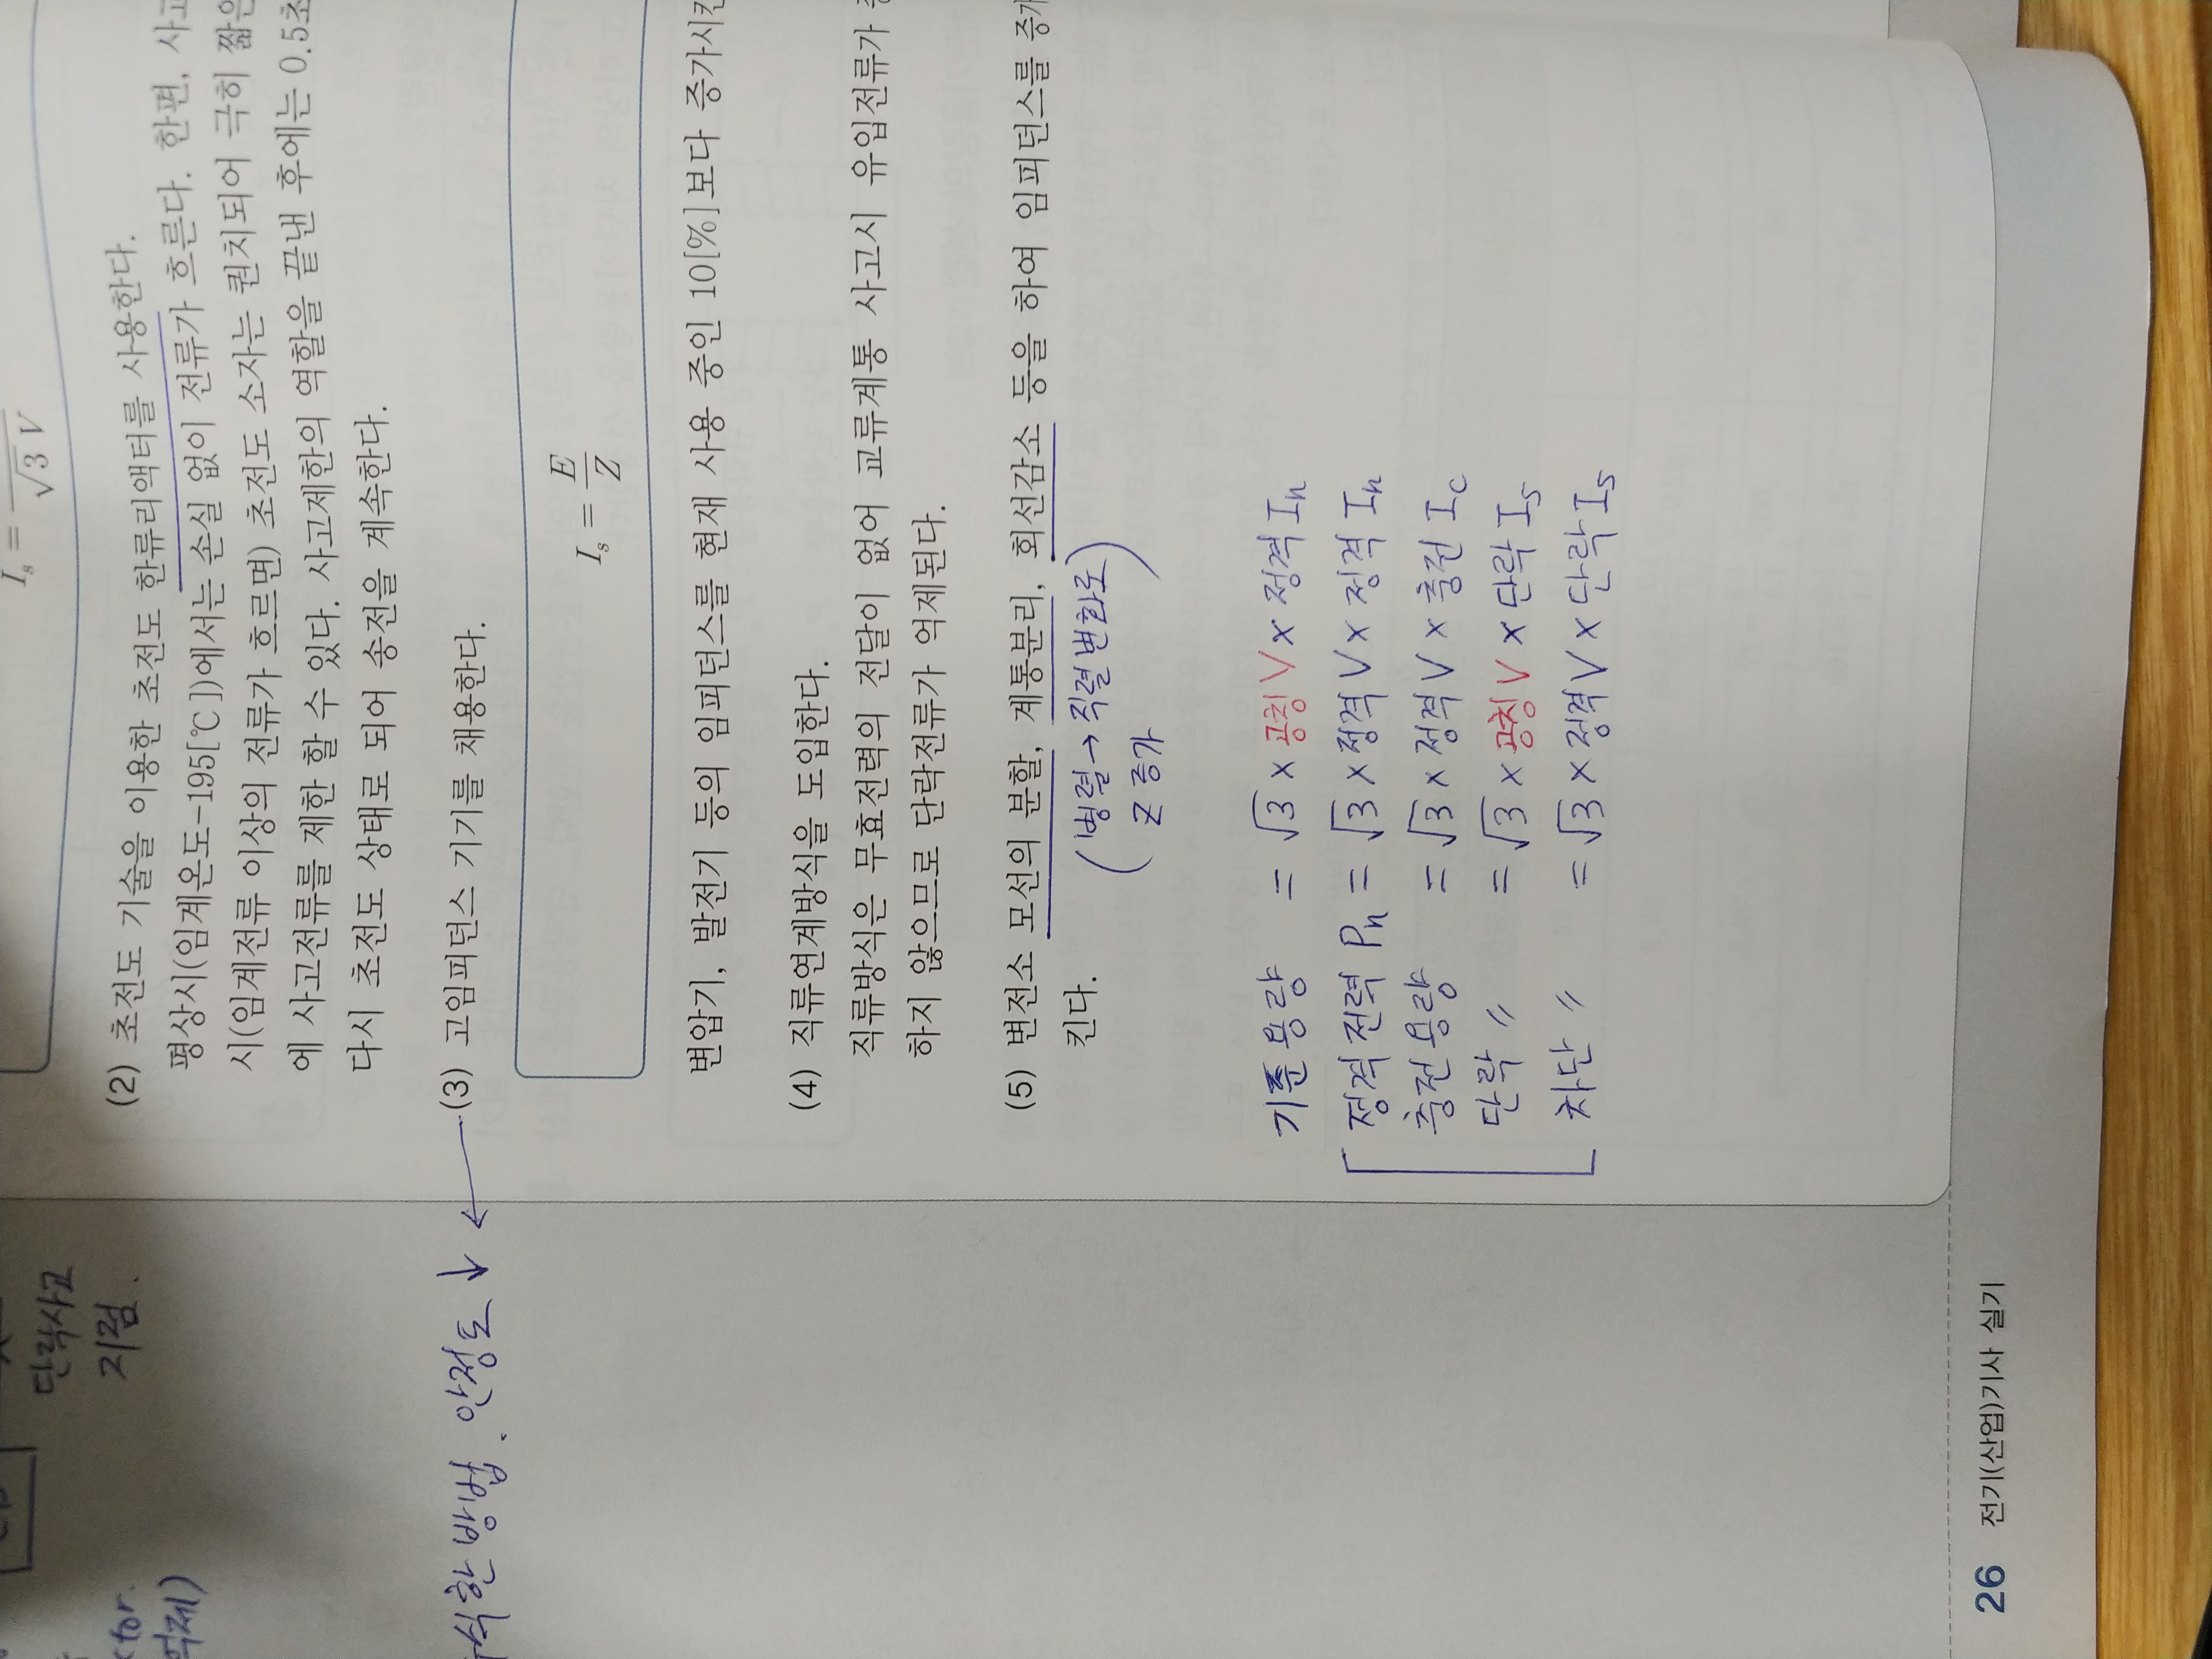 I_s = √3 V
(2) 초전도 기술을 이용한 초전도 한류리액터를 사용한다.
평상시(임계온도-195[℃])에서는 손실 없이 전류가 흐른다. 한편,
시(임계전류 이상의 전류가 흐르면) 초전도 소자는 퀀치되어 극히 짧은
에 사고전류를 제한 할 수 있다. 사고제한의 역할을 끝낸 후에는 0.5초
다시 초전도 상태로 되어 송전을 계속한다.
(3) 고임피던스 기기를 채용한다.
I_s = E/Z
변압기, 발전기 등의 임피던스를 현재 사용 중인 10[%]보다 증가시킨
(4) 직류연계방식을 도입한다.
직류방식은 무효전력의 전달이 없어 교류계통 사고시 유입전류가
하지 않으므로 단락전류가 억제된다.
(5) 변전소 모선의 분할, 계통분리, 회선감소 등을 하여 임피던스를 증가
킨다.
(병렬→직렬변화로)
Z 증가
기준용량 = √3 × 공칭V × 정격 In
정격전력 Pn = √3 × 정격V × 정격 In
충전용량 = √3 × 정격V × 충전 Ic
단락 〃 = √3 × 공칭V × 단락 Is
차단 〃 = √3 × 정격V × 단락 Is
단락사고
지점.
ctor.
억제)
한 방법. 안정도 ↓ ←
26 전기(산업)기사 실기